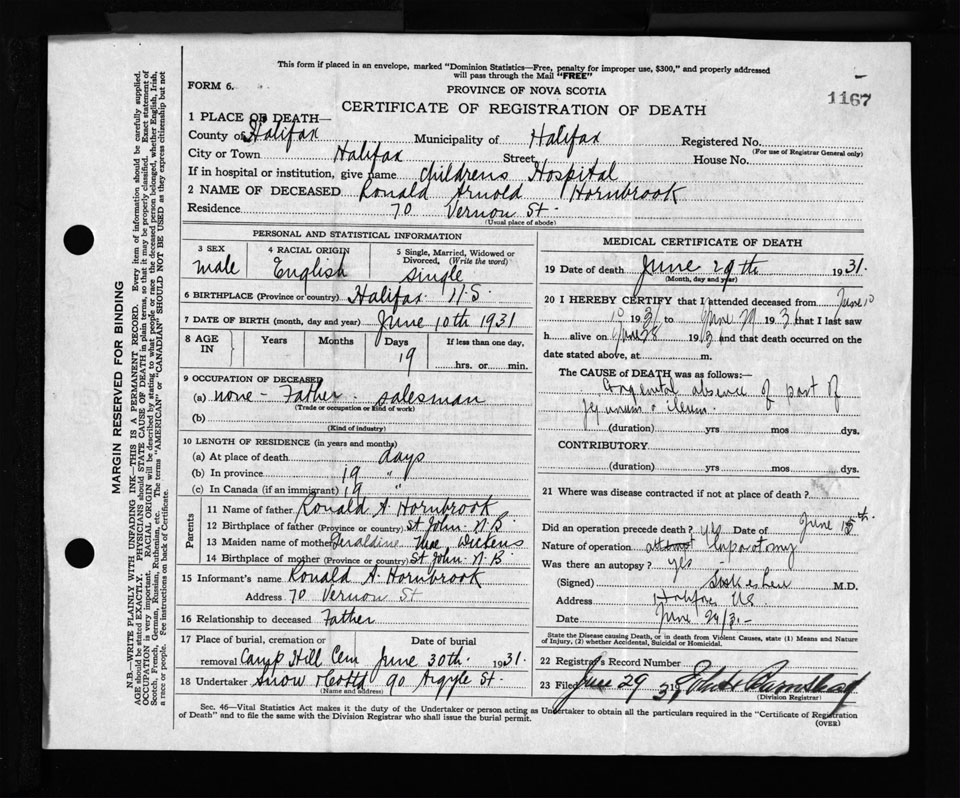 This form if placed in an envelope, marked "Dominion Statistics—Free, penalty for improper use, $300," and properly addressed
will pass through the Mail "FREE"
FORM 6.
PROVINCE OF NOVA SCOTIA
1167
CERTIFICATE OF REGISTRATION OF DEATH
1 PLACE OF DEATH—
County of Halifax Municipality of Halifax Registered No.
(For use of Registrar General only)
City or Town Halifax Street House No.
If in hospital or institution, give name Childrens Hospital
2 NAME OF DECEASED Ronald Arnold Hornbrook
Residence 70 Vernon St.
(Usual place of abode)
PERSONAL AND STATISTICAL INFORMATION
3 SEX 4 RACIAL ORIGIN 5 Single, Married, Widowed or
Divorced, (Write the word)
male English single
6 BIRTHPLACE (Province or country) Halifax N.S.
7 DATE OF BIRTH (month, day and year) June 10th 1931
8 AGE IN Years Months Days If less than one day,
19 hrs. or min.
9 OCCUPATION OF DECEASED
(a) none - Father - salesman
(Trade or occupation or kind of work)
(b)
(Kind of industry)
10 LENGTH OF RESIDENCE (in years and months)
(a) At place of death days
(b) In province 19 "
(c) In Canada (if an immigrant) 19 "
Parents
11 Name of father Ronald A. Hornbrook
12 Birthplace of father (Province or country) St John - N.B.
13 Maiden name of mother Geraldine Mae Dickens
14 Birthplace of mother (Province or country) St. John - N.B
15 Informant's name Ronald A. Hornbrook
Address 70 Vernon St
16 Relationship to deceased Father
17 Place of burial, cremation or Date of burial
removal Camp Hill Cem June 30th. 1931.
18 Undertaker Snow & Co Ltd 90 Argyle St.
(Name and address)
MEDICAL CERTIFICATE OF DEATH
19 Date of death June 29th 1931.
(Month, day and year)
20 I HEREBY CERTIFY that I attended deceased from June 10
10 1931 to June 29 1931 that I last saw
h alive on June 28 193 and that death occurred on the
date stated above, at m.
The CAUSE of DEATH was as follows:—
Congenital absence of part of
jejunum & ileum.
(duration) yrs mos dys.
CONTRIBUTORY
(duration) yrs mos dys.
21 Where was disease contracted if not at place of death?
Did an operation precede death? yes Date of June 15th.
Nature of operation laparotomy
Was there an autopsy? yes
(Signed) M.D.
Address Halifax N.S.
Date June 29/31 -
State the Disease causing Death, or in death from Violent Causes, state (1) Means and Nature
of Injury, (2) whether Accidental, Suicidal or Homicidal.
22 Registrar's Record Number
23 Filed June 29 31
(Division Registrar)
Sec. 46—Vital Statistics Act makes it the duty of the Undertaker or person acting as Undertaker to obtain all the particulars required in the "Certificate of Registration
of Death" and to file the same with the Division Registrar who shall issue the burial permit.
(OVER)
MARGIN RESERVED FOR BINDING
N.B.—WRITE PLAINLY WITH UNFADING INK—THIS IS A PERMANENT RECORD. Every item of information should be carefully supplied.
AGE should be stated EXACTLY. PHYSICIANS should STATE CAUSE OF DEATH in plain terms, so that it may be properly classified. Exact statement of
OCCUPATION is very important. RACIAL ORIGIN will be described by stating to what people or race the deceased person belonged, whether English, Irish,
Scotch, French, German, Russian, Ruthenian, etc. The terms "AMERICAN" or "CANADIAN" SHOULD NOT BE USED as they express citizenship but not
a race or people. See instructions on back of Certificate.